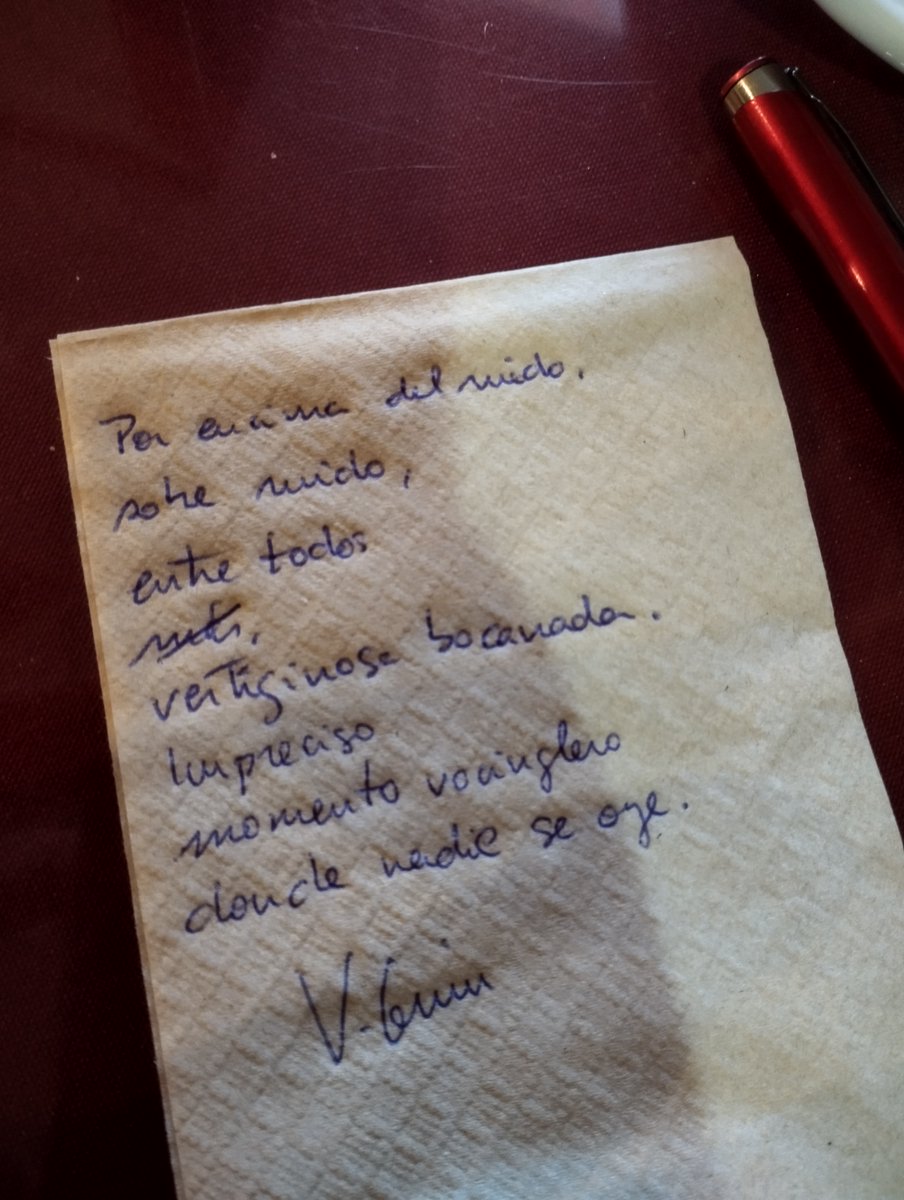 Por encima del ruido,
sobre ruido,
entre todos
vertiginosa bocanada.
Impreciso
momento vocinglero
donde nadie se oye.